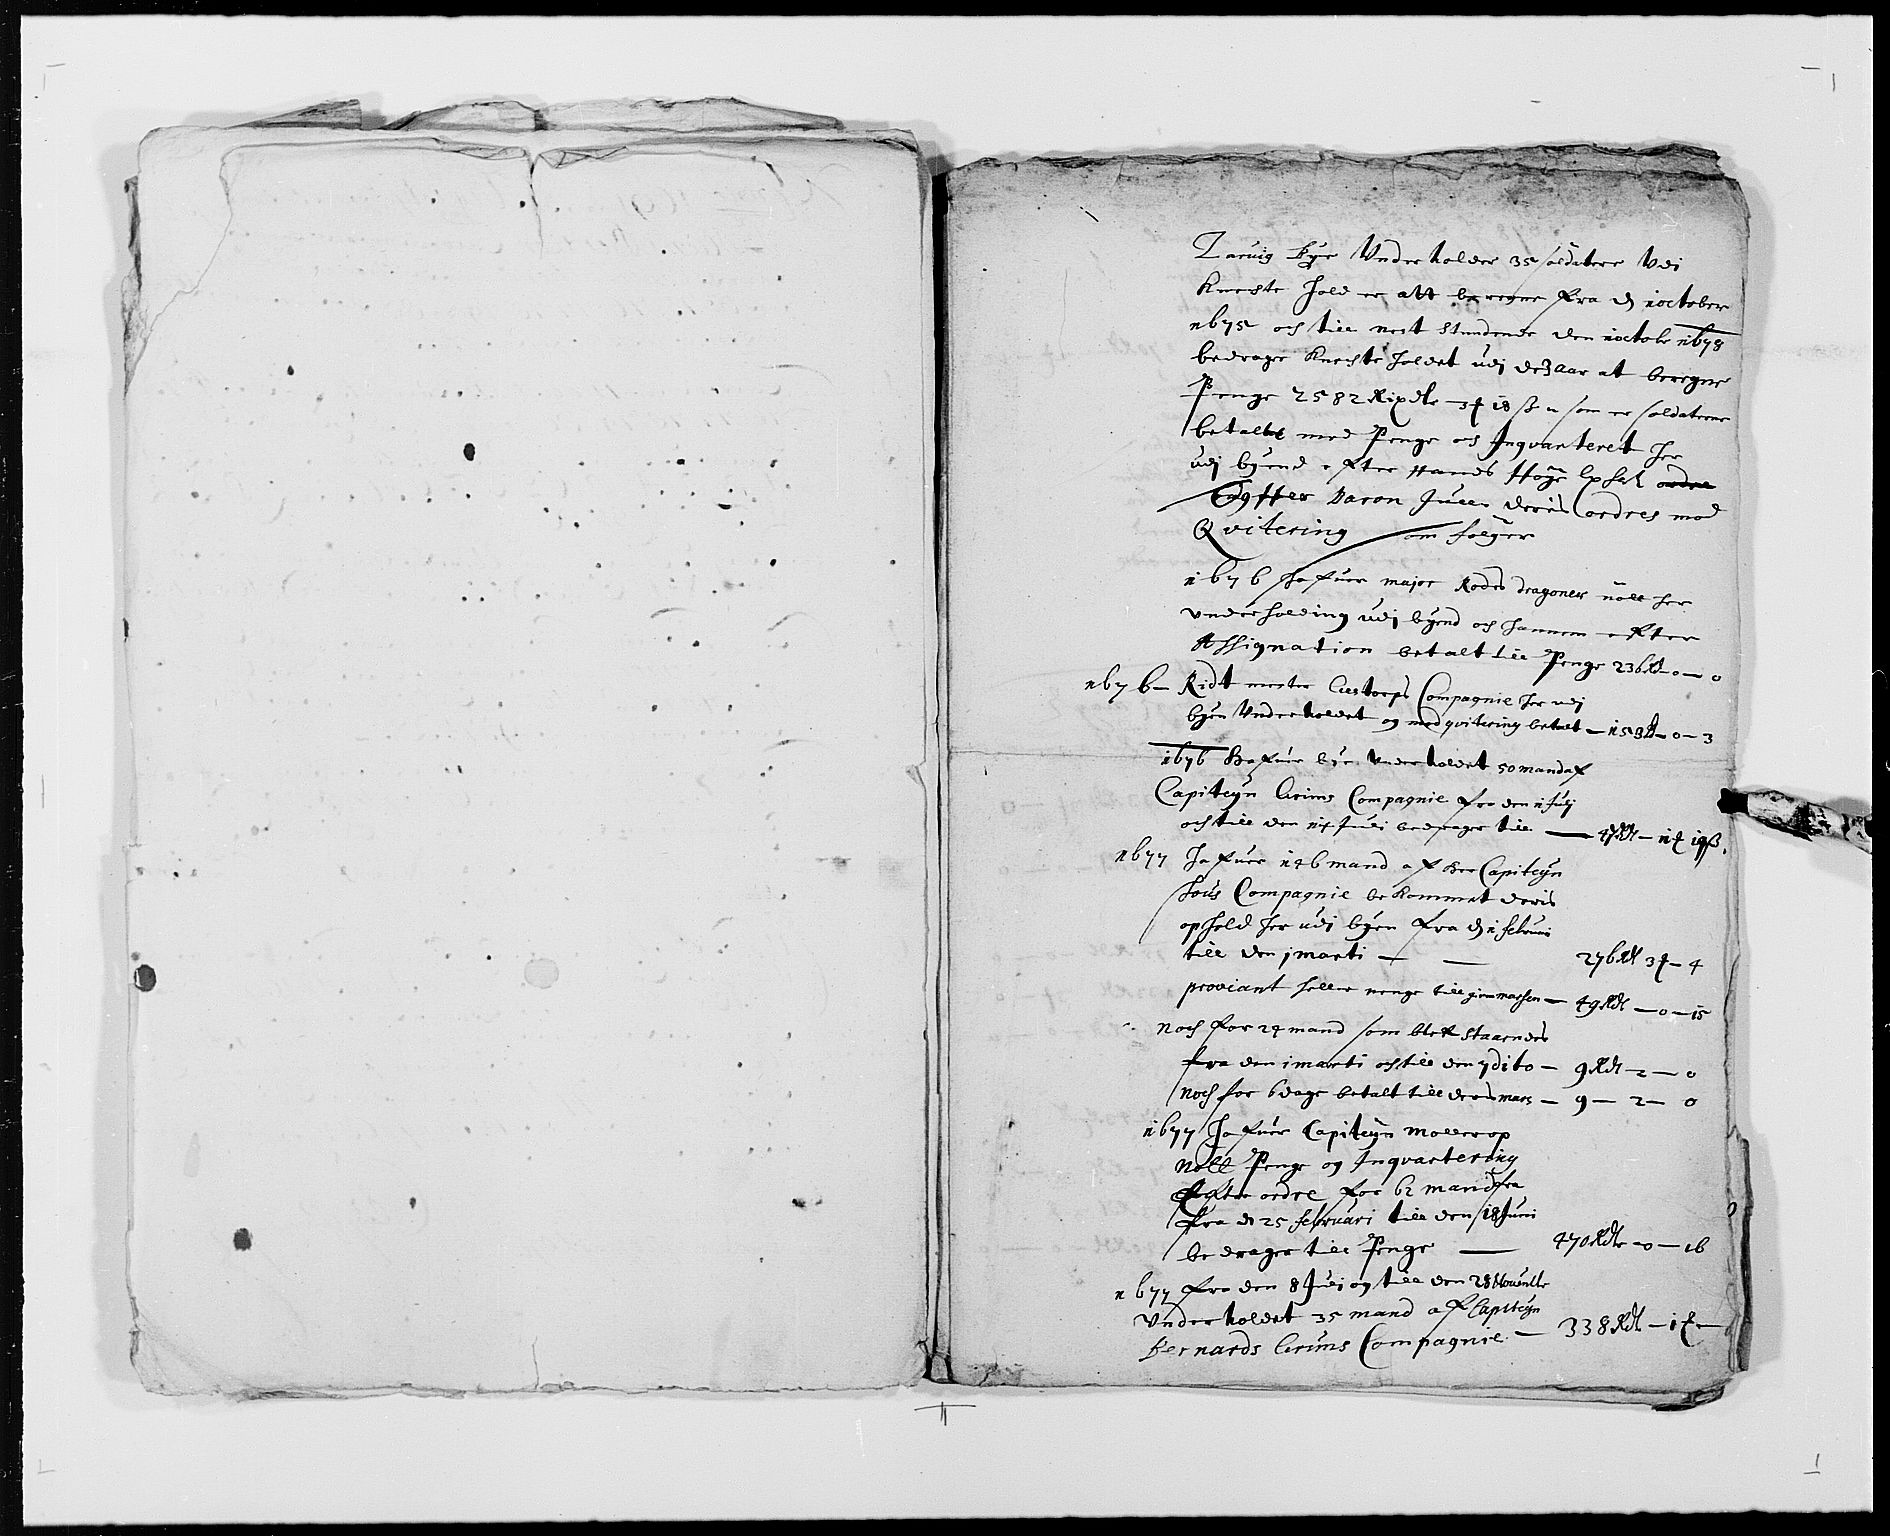 Laruig Bÿe Underholder 35 soldatere Udi
Knechte hold er att beregne fra d 1 october
1675 och till nest stundende den 1 octobr 1678
bedrager Knechte holdet udj de 3 aar at beregne
Penge 2582 Rixdlr — 3 18 ß som er soldaterne
betallt med Penge och Inqvarteret her
udj byend efter Hands Höÿe Exsel
Baron Juels deris ordres med
Qvitering som folger
1676 hafuer major Rodes dragoner nött her
underholding udj byend och hannem efter
Assignation betalt till Penge 236 Rdr — 0 — 0
1676 — Ridtmester Compagnie her udj
byen Underholdet og med qvitering betalt — 153 Rd — 0 — 3
1676 Hafuer bye Underholdet 50 mand af
Capiteyn Compagnie fra den 1 Julj
och till den 14 Juli bedrager till — 47 Rdr — 1 19 ß
1677 Hafuer 146 mand af her Capiteyn
hous Compagnie bekommet deris
ophold her udj byen fra d 1 februari
till den 1 marti — — 276 Rdr 3 — 4
proviant heller penge till — 49 Rdr — 0 — 15
noch for 24 mand som blef staaendes
fra den 1 marti och till den 7 dito — 9 Rdr — 2 — 0
noch for 6 dage betalt till deris mars — 9 — 2 — 0
1677 Hafuer Capiteyn Mollerop
nött Penge og Inqvartering
Efter ordre for 62 mand fra
fra d 25 februari till den 18 Juni
bedrager till Penge — 470 Rdr — 0 — 16
1677 fra den 8 Juli og till den 28 Nouembr
Underholdet 35 mand af Capiteyn
Bernards Compagnie — 338 Rdr — 1 —